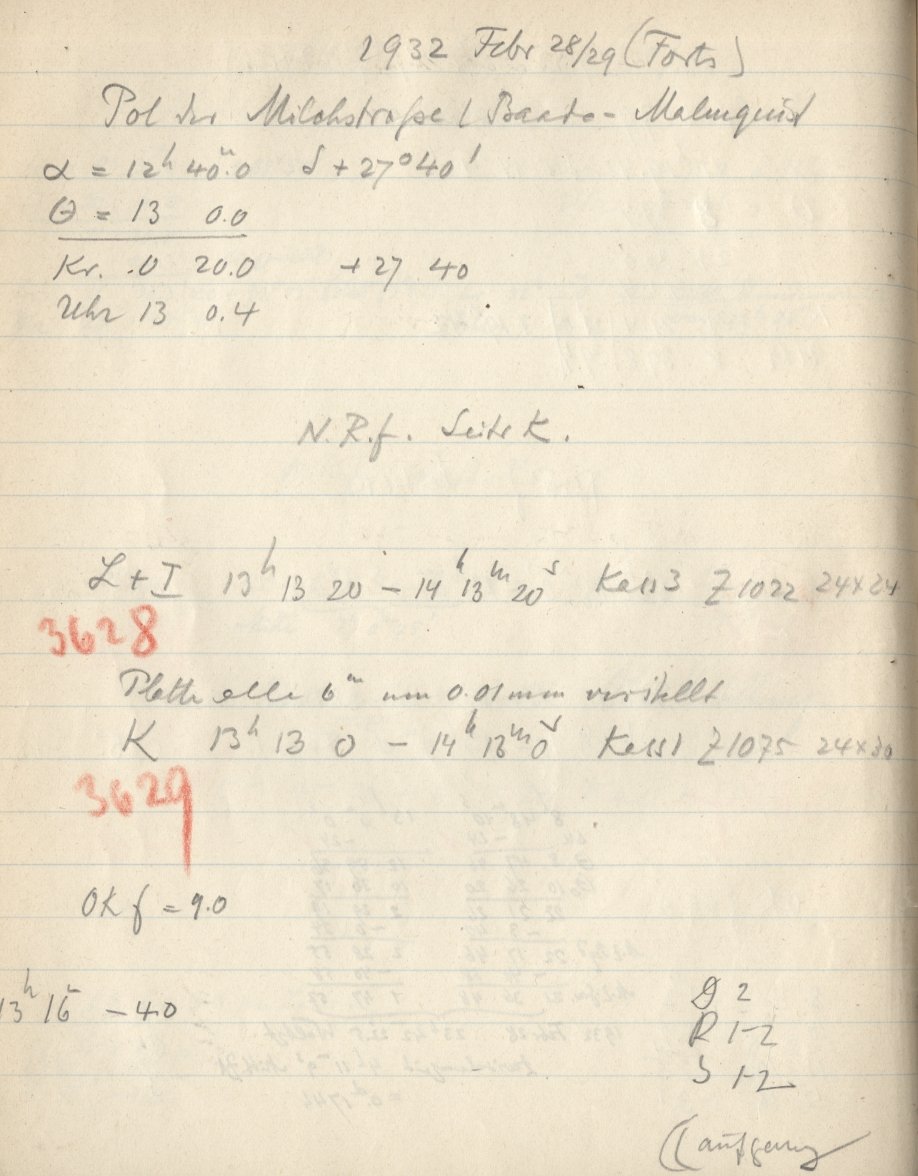 1932 Febr 28/29 (Forts)
Pol der Milchstraße (Baade-Malmquist
α = 12h 40m.0 δ + 27° 40'
Θ = 13 0.0
Kr. .0 20.0 + 27 40
Uhr 13 0.4
N.R.f. Seite K.
L + I 13h 13 20 – 14h 13m 20s Kass 3 Z 1022 24×24
3628
Platte alle 6m um 0.01 mm verstellt
K 13h 13 0 – 14h 13m 0s Kass 1 Z 1075 24×30
3629
OK f = 9.0
13h 16m – 4.0
D 2
R 1-2
S 1-2
(( aufgang